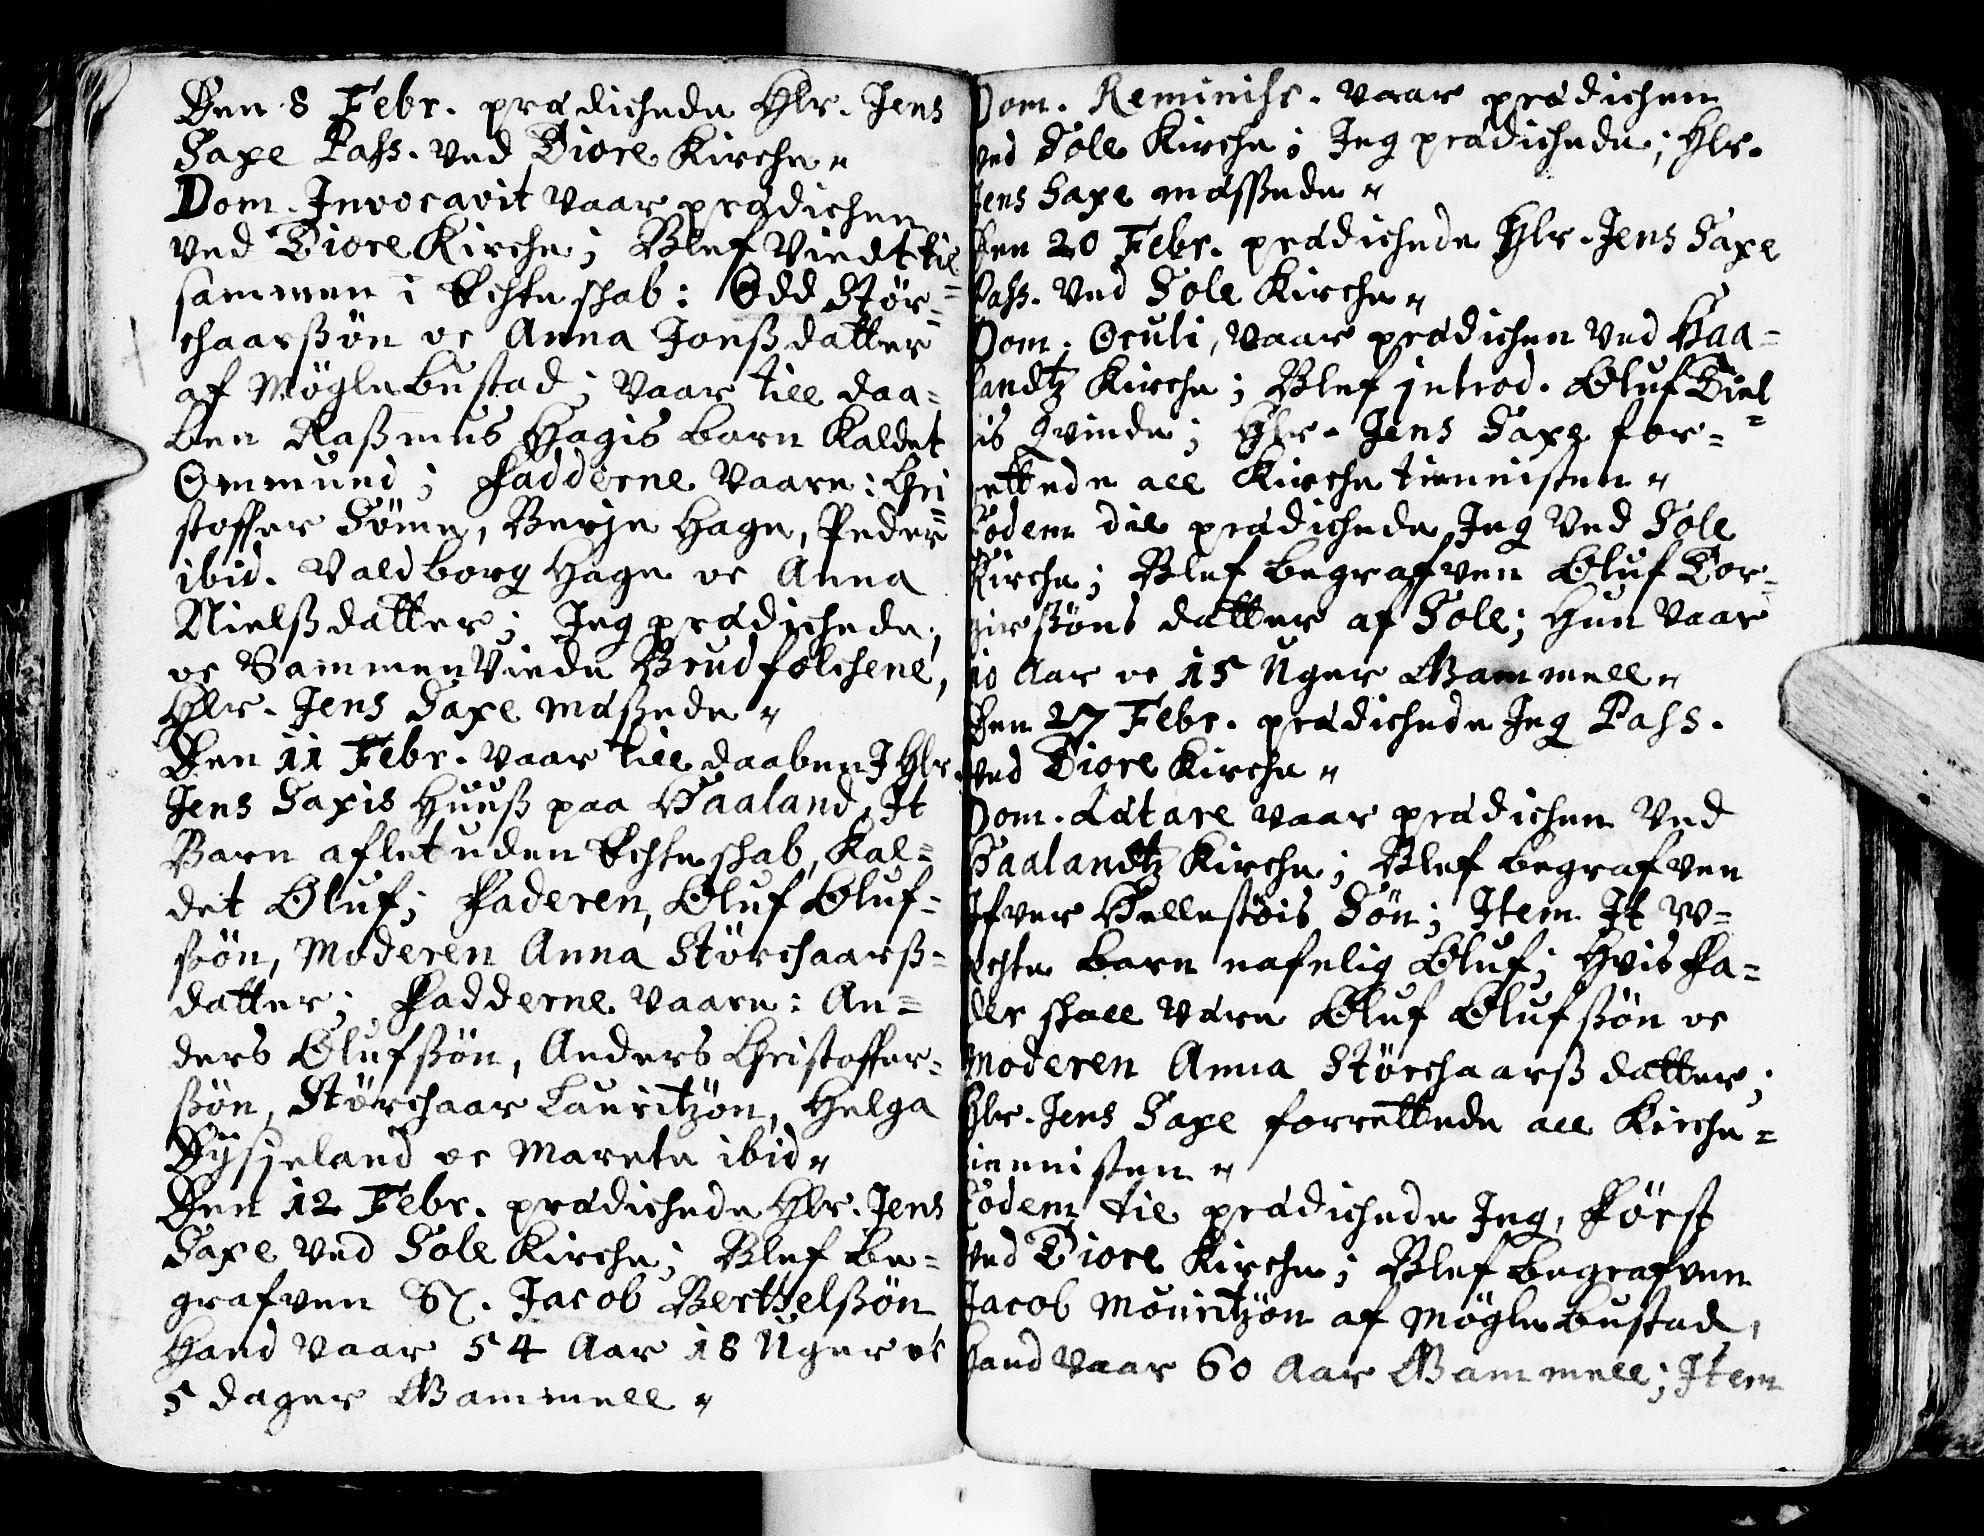 Den 8 Febr. prædichede Hlr. Jens
Saxe Pass. ved Tiore Kirche"
Dom. Invocavit vaar prædichen
ved Tiore Kirche; Blef Viedt til=
sammen i Echteschab: Odd Stør=
chaarsßøn oc Anna Jonßdatter
af Møglebustad; vaar till daa=
ben Raßmus Hagis barn kaldet
Ommund; Fadderne vaare: Chri=
stoffer Sømme, Berje Hage, Peder
ibid. Valdborg Hage oc Anna
Nielßdatter; Jeg prædichede,
oc Sammenviede Brudfolchene,
Hlr. Jens Saxe mæßede"
Den 11 Febr. vaar till daaben J Hlr.
Jens Saxis Huuß paa Haaland, It
Barn aflet uden Echteschab, Kal=
det Oluf; Faderen, Oluf Oluf=
ßøn, Moderen Anna Störchaarß=
datter; Fadderne vaare: An=
ders Olufßøn, Anders Christoffer=
ßøn, Störchaar Lauritzøn, Helga
Dysjeland oc Marete ibid"
Den 12 Febr. prædichede Hlr. Jens
Saxe ved Sole Kirche; Blef be=
grafven Sl. Jacob Berthelßøn
Hand vaar 54 Aar 18 Uger oc
5 dager Gammell"
Dom. Reminisc. vaar prædichen
ved Sole Kirche; Jeg prædichede; Hlr.
Jens Saxe mæssede"
Den 20 Febr. prædichede Hlr. Jens Saxe
Pass. ved Sole Kirche"
Dom. Oculi, vaar prædichen ved Haa=
landtz Kirche; Blef introd. Oluf Tiel=
is Qvinde; Hlr. Jens Saxe for=
rettede all Kirchetiennisten"
Eodem die prædichede Jeg ved Sole
Kirche; Blef begrafven Oluf Tor=
girßøns datter af Sole; Hun vaar
10 Aar oc 15 Uger Gammell"
Den 27 Febr. prædichede Jeg Pass.
ved Tiore Kirche"
Dom. Lætare vaar prædichen ved
Haalandtz Kirche; Blef begrafven
Ifver Hellestøis Søn; Item It w=
echte barn nafnlig Oluf; Hvis Fa=
der shall være Oluf Olufßøn oc
Moderen Anna Störchaarßdatter;
Hlr. Jens Saxe forrettede all Kirche=
tiennisten"
Eodem die prædichede Jeg, Först
ved Tiore Kirche; Blef begrafven
Jacob Mouritzøn af Møglebustad,
Hand vaar 60 Aar Gammell; Item